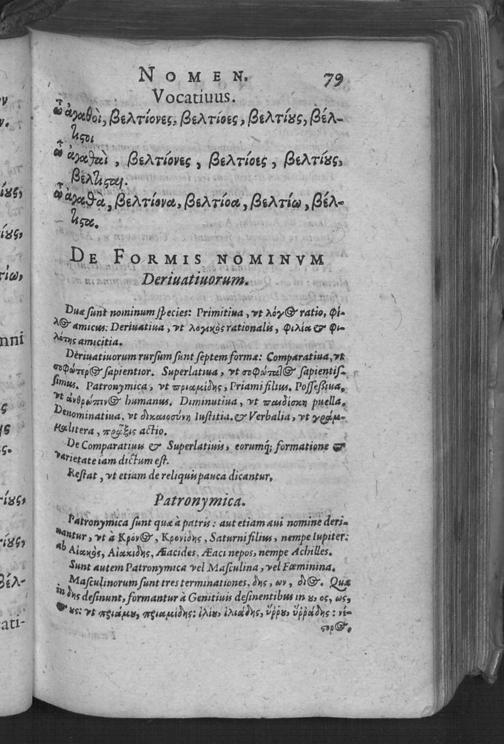 NOMEN. 79
Vocatiuus.
ὦ ἀγαθοὶ, βελτίονες, βελτίοες, βελτίους, βέλ-
τιςοι
ὦ ἀγαθαὶ, βελτίονες, βελτίοες, βελτίους,
βέλτιςαι.
ὦ ἀγαθὰ, βελτίονα, βελτίοα, βελτίω, βέλ-
τιςα.
DE FORMIS NOMINVM
Deriuatiuorum.
Duæ sunt nominum species: Primitiua, vt λόγος ratio, φί-
λος amicus: Deriuatiua, vt λογικὸς rationalis, φιλία & φι-
λότης amicitia.
Deriuatiuorum rursum sunt septem formæ: Comparatiua, vt
σοφώτερος sapientior. Superlatiua, vt σοφώτατος sapientis-
simus. Patronymica, vt πριαμίδης, Priami filius. Possessiua,
vt ἀνθρώπινος humanus. Diminutiua, vt παιδίσκη puella.
Denominatiua. vt δικαιοσύνη Iustitia. & Verbalia, vt γράμ-
μα litera, πρᾶξις actio.
De Comparatiuis & Superlatiuis, eorumq́; formatione &
varietate iam dictum est.
Restat, vt etiam de reliquis pauca dicantur.
Patronymica.
Patronymica sunt quæ à patris: aut etiam aui nomine deri-
uantur, vt à Κρόνος, Κρονίδης, Saturni filius, nempe Iupiter:
ab Αἰακὸς, Αἰακίδης, Æacides, Æaci nepos, nempe Achilles.
Sunt autem Patronymica vel Masculina, vel Fœminina.
Masculinorum sunt tres terminationes, δης, ων, διος. Quæ
in δης desinunt, formantur à Genitiuis desinentibus in ου, ος, ως,
& υς: vt πριάμου, πριαμίδης: ἰλίου, ἰλιάδης,